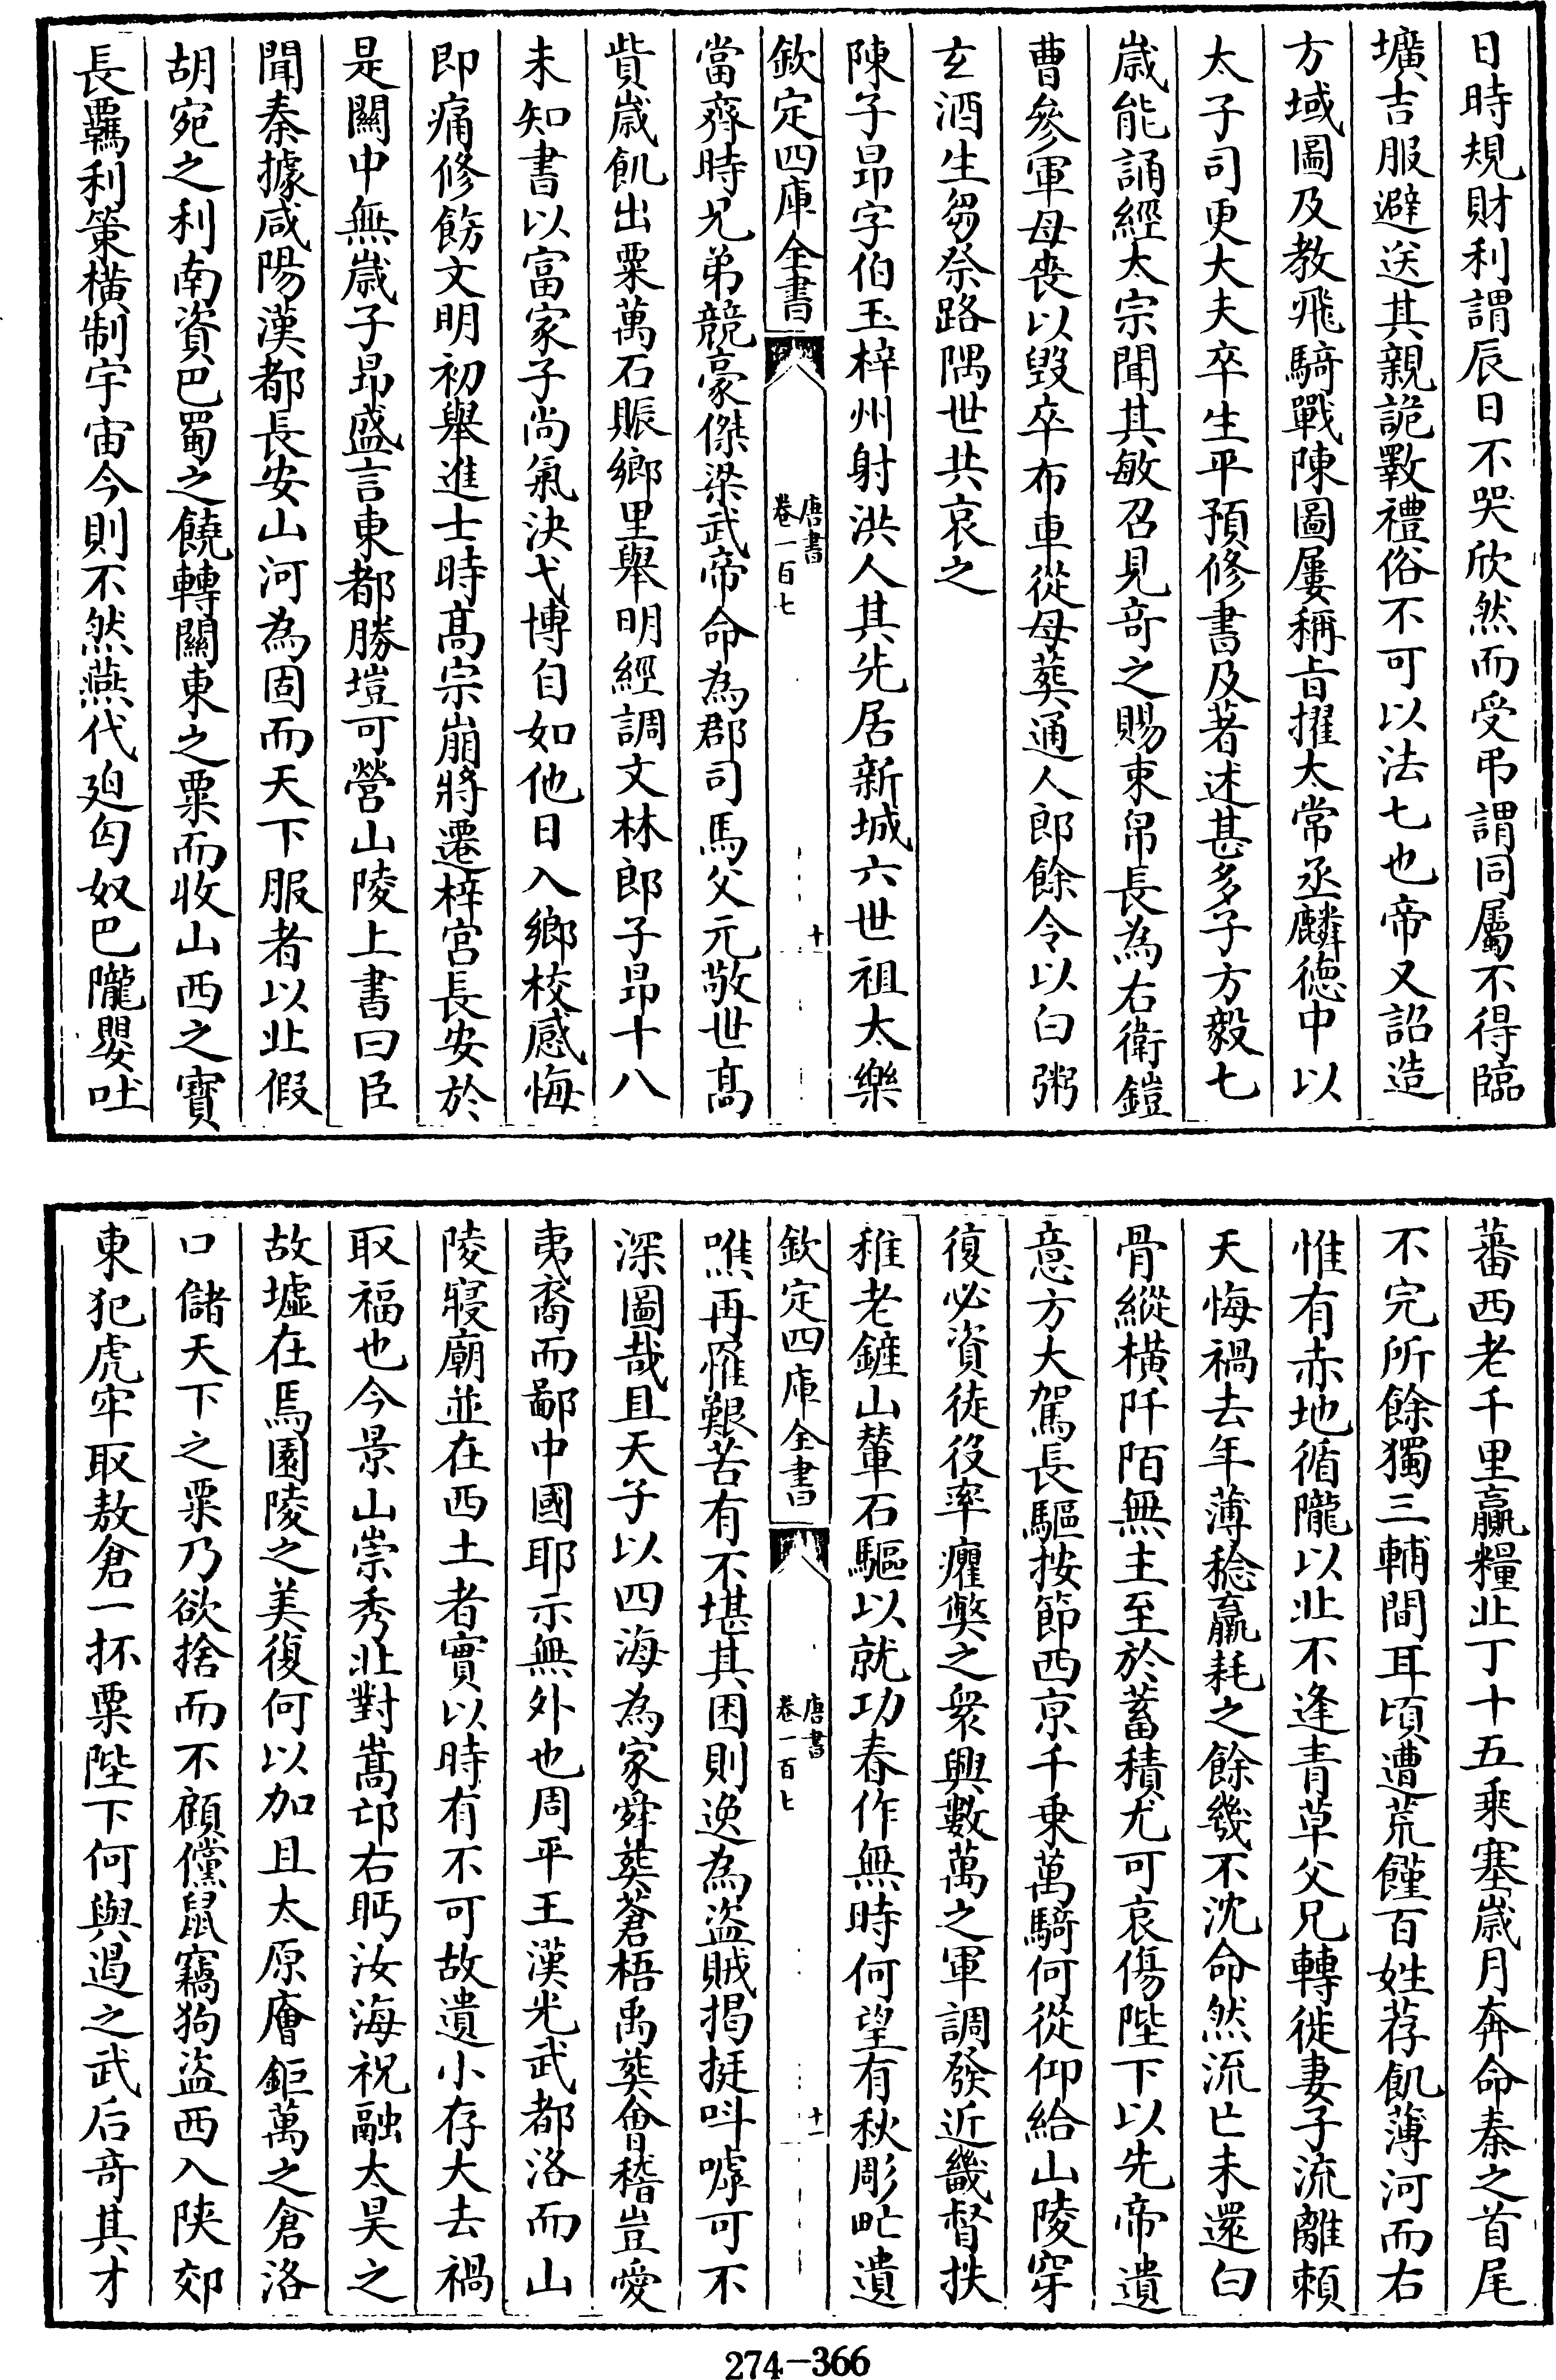 日時規財利謂辰日不哭欣然而受弔謂同屬不得臨
壙吉服避送其親詭斁禮俗不可以法七也帝又詔造
方域圖及教飛騎戰陳圖屢稱旨擢太常丞麟德中以
太子司更大夫卒生平預修書及著述甚多子方毅七
歳能誦經太宗聞其敏召見竒之賜束帛長為右衛鎧
曹參軍母喪以毁卒布車從母葬通人郎餘令以白粥
玄酒生芻祭路隅世共哀之
陳子昂字伯玉梓州射洪人其先居新城六世祖太樂
欽定四庫全書
唐書
卷一百七
十
當齊時兄弟競豪傑梁武帝命為郡司馬父元敬世髙
貲歳飢出粟萬石賑鄉里舉明經調文林郎子昂十八
未知書以富家子尚氣決弋博自如他日入鄉校感悔
即痛修飭文明初舉進士時髙宗崩將遷梓宫長安於
是關中無歳子昂盛言東都勝塏可營山陵上書曰臣
聞秦據咸陽漢都長安山河為固而天下服者以北假
胡宛之利南資巴蜀之饒轉關東之粟而收山西之寳
長羈利策横制宇宙今則不然燕代廹匈奴巴隴嬰吐
蕃西老千里贏糧北丁十五乘塞歳月奔命秦之首尾
不完所餘獨三輔間耳頃遭荒饉百姓荐飢薄河而右
惟有赤地循隴以北不逢青草父兄轉徙妻子流離頼
天悔禍去年薄稔羸耗之餘幾不沈命然流亡未還白
骨縱横阡陌無主至於蓄積尤可哀傷陛下以先帝遺
意方大駕長驅按節西京千乘萬騎何從仰給山陵穿
復必資徒役率癯弊之衆興數萬之軍調發近畿督抶
稚老鏟山輦石驅以就功春作無時何望有秋彫甿遺
欽定四庫全書
唐書
卷一百七
十一
噍再罹艱苦有不堪其困則逸為盜賊揭挺呌嘑可不
深圖哉且天子以四海為家舜葬蒼梧禹葬會稽豈愛
夷裔而鄙中國耶示無外也周平王漢光武都洛而山
陵寢廟並在西土者實以時有不可故遺小存大去禍
取福也今景山崇秀北對嵩邙右眄汝海祝融太昊之
故墟在焉園陵之美復何以加且太原廥鉅萬之倉洛
口儲天下之粟乃欲捨而不顧儻鼠竊狗盜西入陜郊
東犯虎牢取敖倉一抔粟陛下何與遏之武后竒其才
274-366